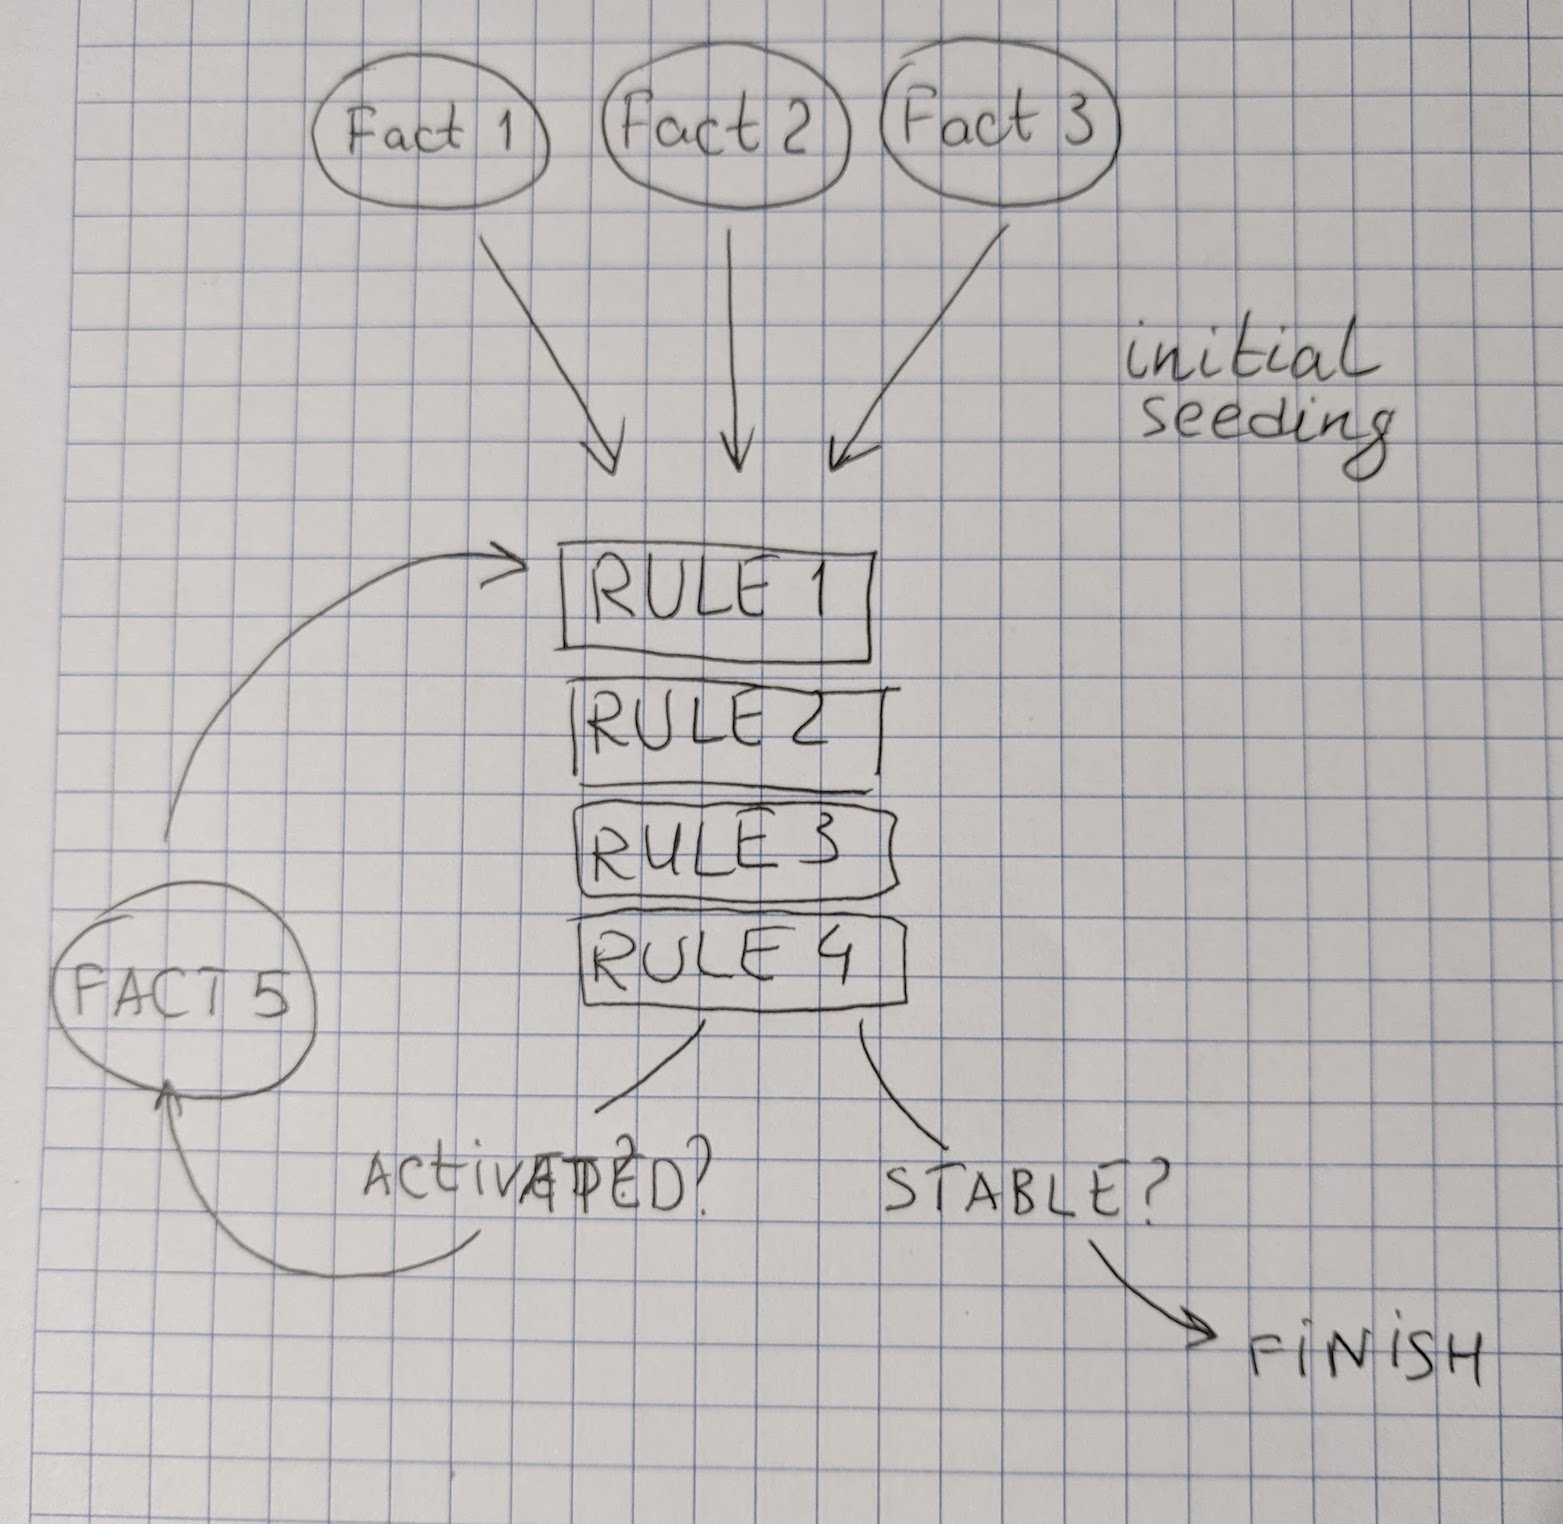 Fact 1
Fact 2
Fact 3
initial
seeding
RULE 1
RULE 2
RULE 3
RULE 4
FACT 5
ACtiVATED?
STABLE?
FiNiSH